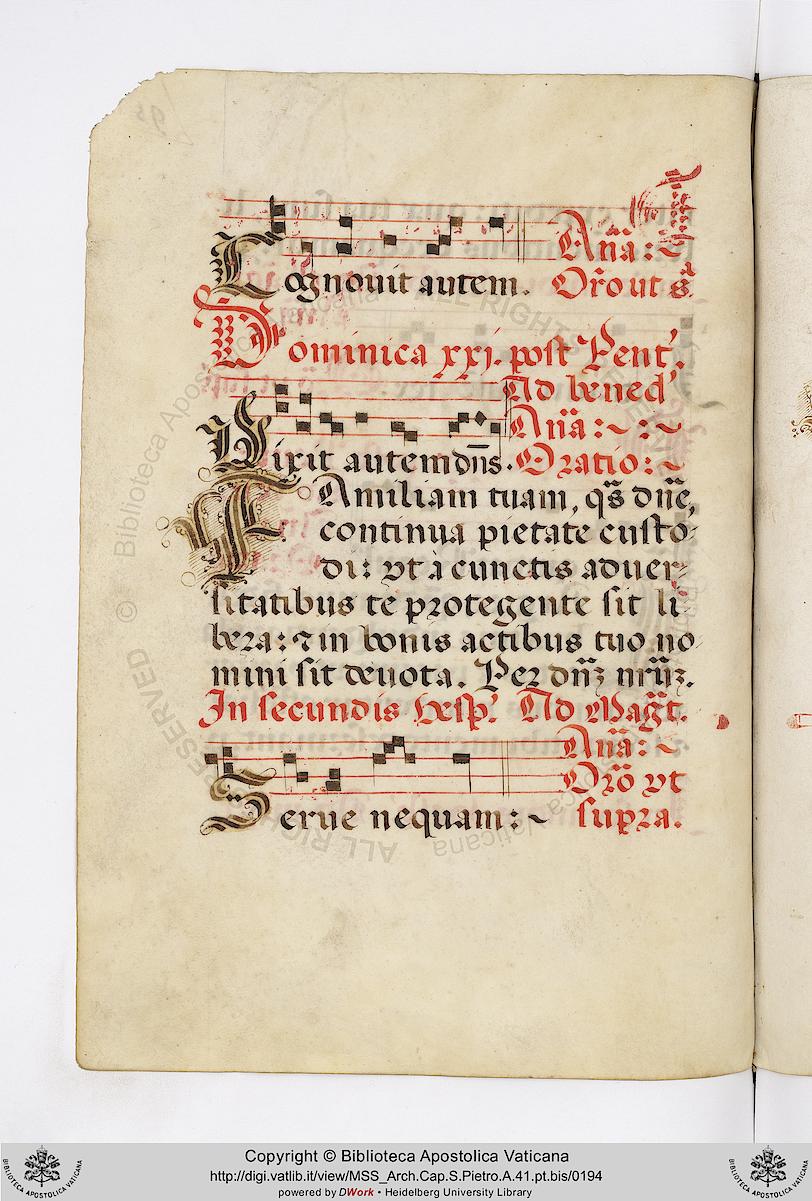 Añā :~
Cognouit autem. Oro᷑ ut s̄ᵃ
Dominica xxj. post Pent'.
Ad bened'
Añā :~:~
Dixit autem dn̄s. Oratio :~
FAmiliam tuam, qs̄ dn̄e,
continua pietate custo-
di: vt à cunctis aduer-
sitatibus te protegente sit li
bera: ⁊ in bonis actibus tuo no-
mini sit deuota. Per dn̄ꝫ nr̄ꝫ.
In secundis vesp'. Ad Mag̃t.
Añā :~
Orō vt
Serue nequam :~ supra.
© Biblioteca Apostolica Vaticana ALL RIGHTS RESERVED
Copyright © Biblioteca Apostolica Vaticana
http://digi.vatlib.it/view/MSS_Arch.Cap.S.Pietro.A.41.pt.bis/0194
powered by DWork • Heidelberg University Library
BIBLIOTECA APOSTOLICA VATICANA
BIBLIOTECA APOSTOLICA VATICANA